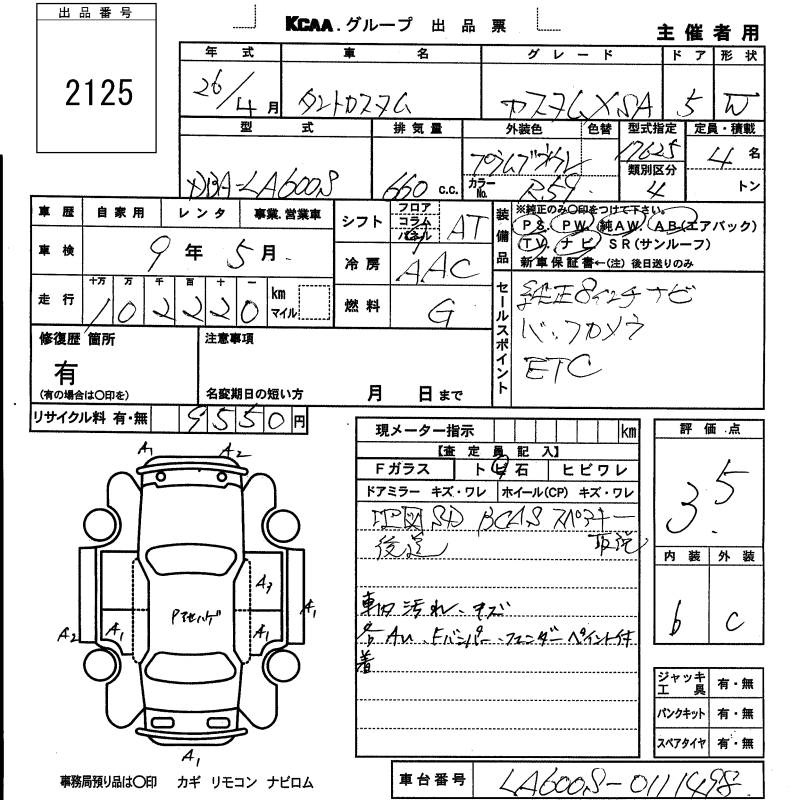 出品番号
2125
KCAA.グループ 出品票
主催者用
年式 車名 グレード ドア 形状
26/4月 タントカスタム カスタムXSA 5 W
型式 排気量 外装色 色替 型式指定 定員・積載
DBA-LA600S 660 c.c. カラーNo. R59 17625 類別区分 4 4名 トン
車歴 自家用 レンタ 事業.営業車
車検 9年 5月
走行 十万 万 千 百 十 一
102220 km マイル
シフト フロア コラム パネル AT
冷房 AAC
燃料 G
装備品
※純正のみ○印をつけて下さい。
PS. PW. 純AW. AB(エアバック)
TV. ナビ SR(サンルーフ)
新車保証書←(注) 後日送りのみ
セールスポイント
純正8インチナビ
バックカメラ
ETC
修復歴 箇所
有
(有の場合は○印を)
注意事項
名変期日の短い方 月 日まで
リサイクル料 有・無 9550円
現メーター指示 km
【査定員記入】
Fガラス トビ石 ヒビワレ
ドアミラー キズ・ワレ ホイール(CP) キズ・ワレ
地図SD BCAS スペアキー
後送 取説
車内汚れ、キズ
各AU、Fバンパー、フェンダーペイント付
着
評価点
3.5
内装 外装
b c
ジャッキ工具 有・無
パンクキット 有・無
スペアタイヤ 有・無
A1 A2
A3
A2 A1 A1 A1
Pマセハゲ
A1
事務局預り品は○印 カギ リモコン ナビロム
車台番号 LA600S-0111498